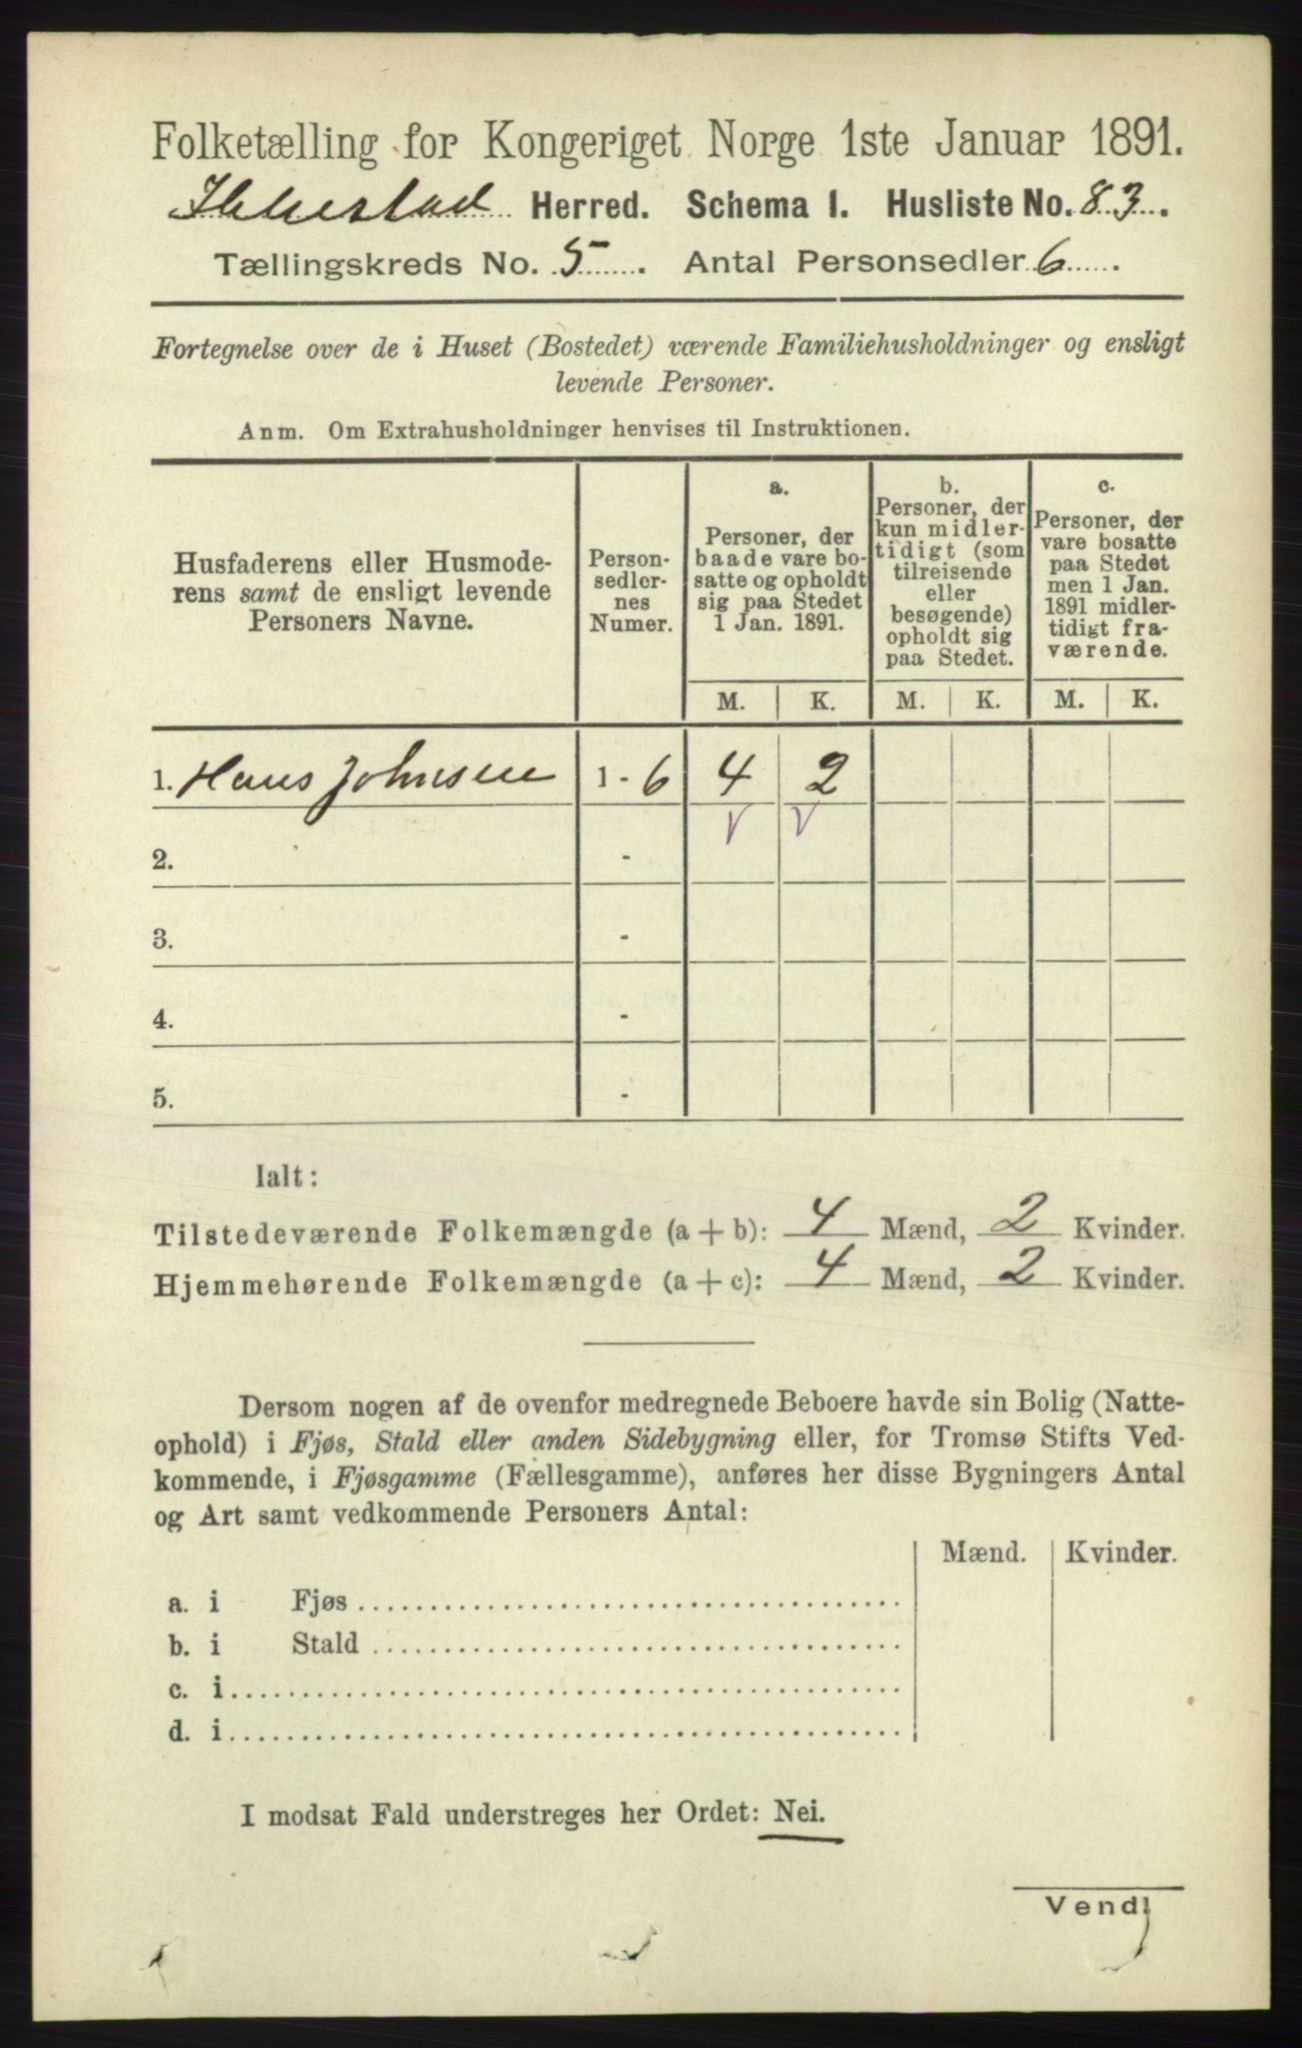 Folketælling for Kongeriget Norge 1ste Januar 1891.
Ibbestad Herred. Schema I. Husliste No. 83.
Tællingskreds No. 5. Antal Personsedler 6.
Fortegnelse over de i Huset (Bostedet) værende Familiehusholdninger og ensligt
levende Personer.
Anm. Om Extrahusholdninger henvises til Instruktionen.
Husfaderens eller Husmode-
rens samt de ensligt levende
Personers Navne.
Person-
sedler-
nes
Numer.
a.
Personer, der
baade vare bo-
satte og opholdt
sig paa Stedet
1 Jan. 1891.
b.
Personer, der
kun midler-
tidigt (som
tilreisende
eller
besøgende)
opholdt sig
paa Stedet.
c.
Personer, der
vare bosatte
paa Stedet
men 1 Jan.
1891 midler-
tidigt fra-
værende.
M. K. M. K. M. K.
1. Hans Johnsen 1 - 6 4 2
2. -
3. -
4. -
5. -
Ialt:
Tilstedeværende Folkemængde (a + b): 4 Mænd, 2 Kvinder.
Hjemmehørende Folkemængde (a + c): 4 Mænd, 2 Kvinder.
Dersom nogen af de ovenfor medregnede Beboere havde sin Bolig (Natte-
ophold) i Fjøs, Stald eller anden Sidebygning eller, for Tromsø Stifts Ved-
kommende, i Fjøsgamme (Fællesgamme), anføres her disse Bygningers Antal
og Art samt vedkommende Personers Antal:
Mænd. Kvinder.
a. i Fjøs
b. i Stald
c. i
d. i
I modsat Fald understreges her Ordet: Nei.
Vend!